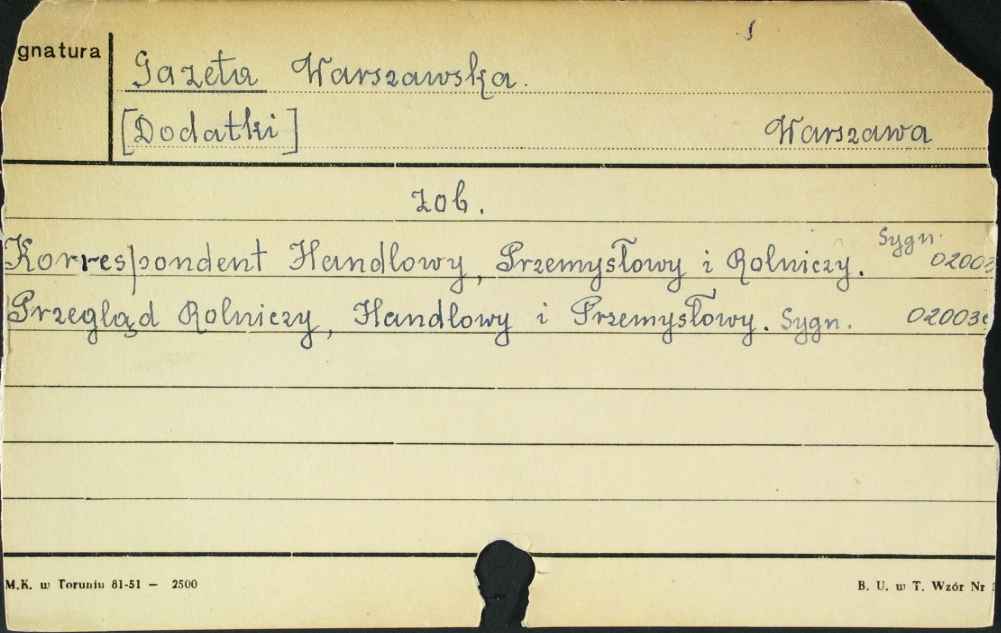 gnatura
Gazeta Warszawska.
[Dodatki] Warszawa
zob.
Korrespondent Handlowy, Przemysłowy i Rolniczy. Sygn. 02003
Przegląd Rolniczy, Handlowy i Przemysłowy. Sygn. 02003
M.K. w Toruniu 81-51 — 2500
B. U. w T. Wzór Nr